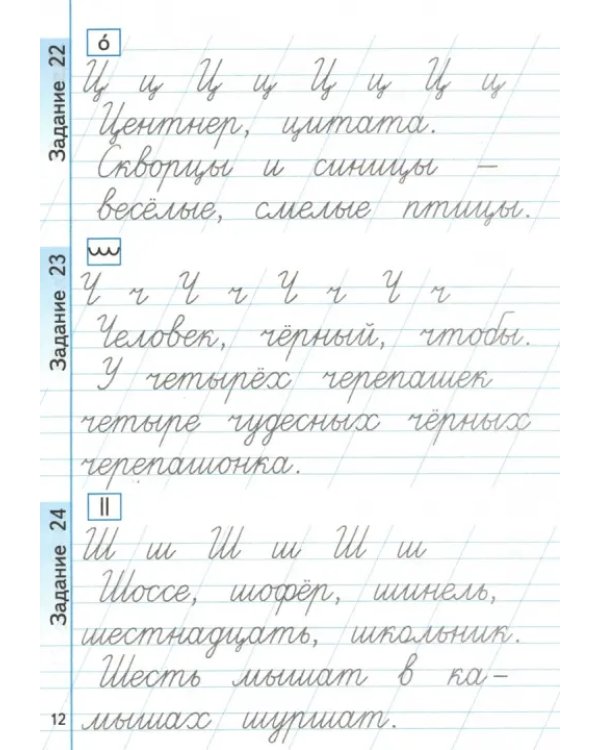 Задание 22
о́
Ц ц Ц ц Ц ц Ц ц
Центнер, цитата.
Скворцы и синицы –
весёлые, смелые птицы.
Задание 23
Ч ч Ч ч Ч ч Ч ч
Человек, чёрный, чтобы.
У четырёх черепашек
четыре чудесных чёрных
черепашонка.
Задание 24
Ш ш Ш ш Ш ш
Шоссе, шофёр, шинель,
шестнадцать, школьник.
Шесть мышат в ка–
мышах шуршат.
12